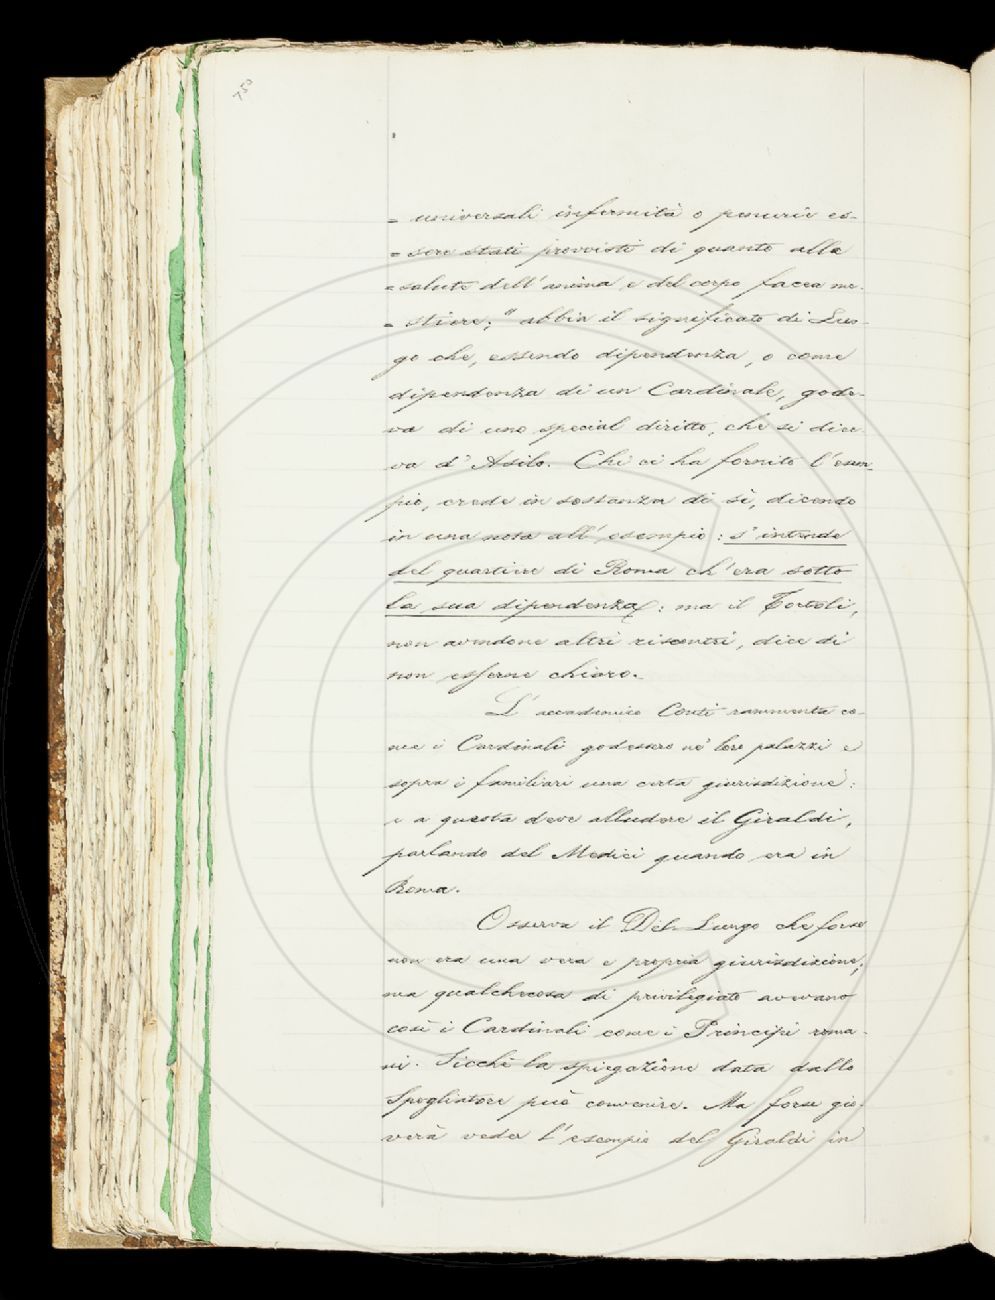 750
= universali infermità o penurie es-
= sere stati provvisti di quanto alla
= salute dell'anima e del corpo facea me-
= stiere; " abbia il significato di Luo-
go che, essendo dipendenza, o come
dipendenza di un Cardinale, gode-
va di uno special diritto, che si dice
va d'Asilo. Chi ci ha fornito l'esem-
pio, crede in sostanza di sì, dicendo
in una nota all'esempio: s'intende
del quartiere di Roma ch'era sotto
la sua dipendenza: ma il Tortoli,
non avendone altri riscontri, dice di
non esserne chiaro.
L'accademico Conti rammenta co-
me i Cardinali godessero ne' loro palazzi e
sopra i familiari una certa giurisdizione:
e a questa deve alludere il Giraldi,
parlando del Medici quando era in
Roma.
Osserva il Del-Lungo che forse
non era una vera e propria giurisdizione;
ma qualchecosa di privilegiato avevano
così i Cardinali come i Principi roma-
ni. Sicchè la spiegazione data dallo
Spogliatore può convenire. Ma forse gio-
verà veder l'esempio del Giraldi in